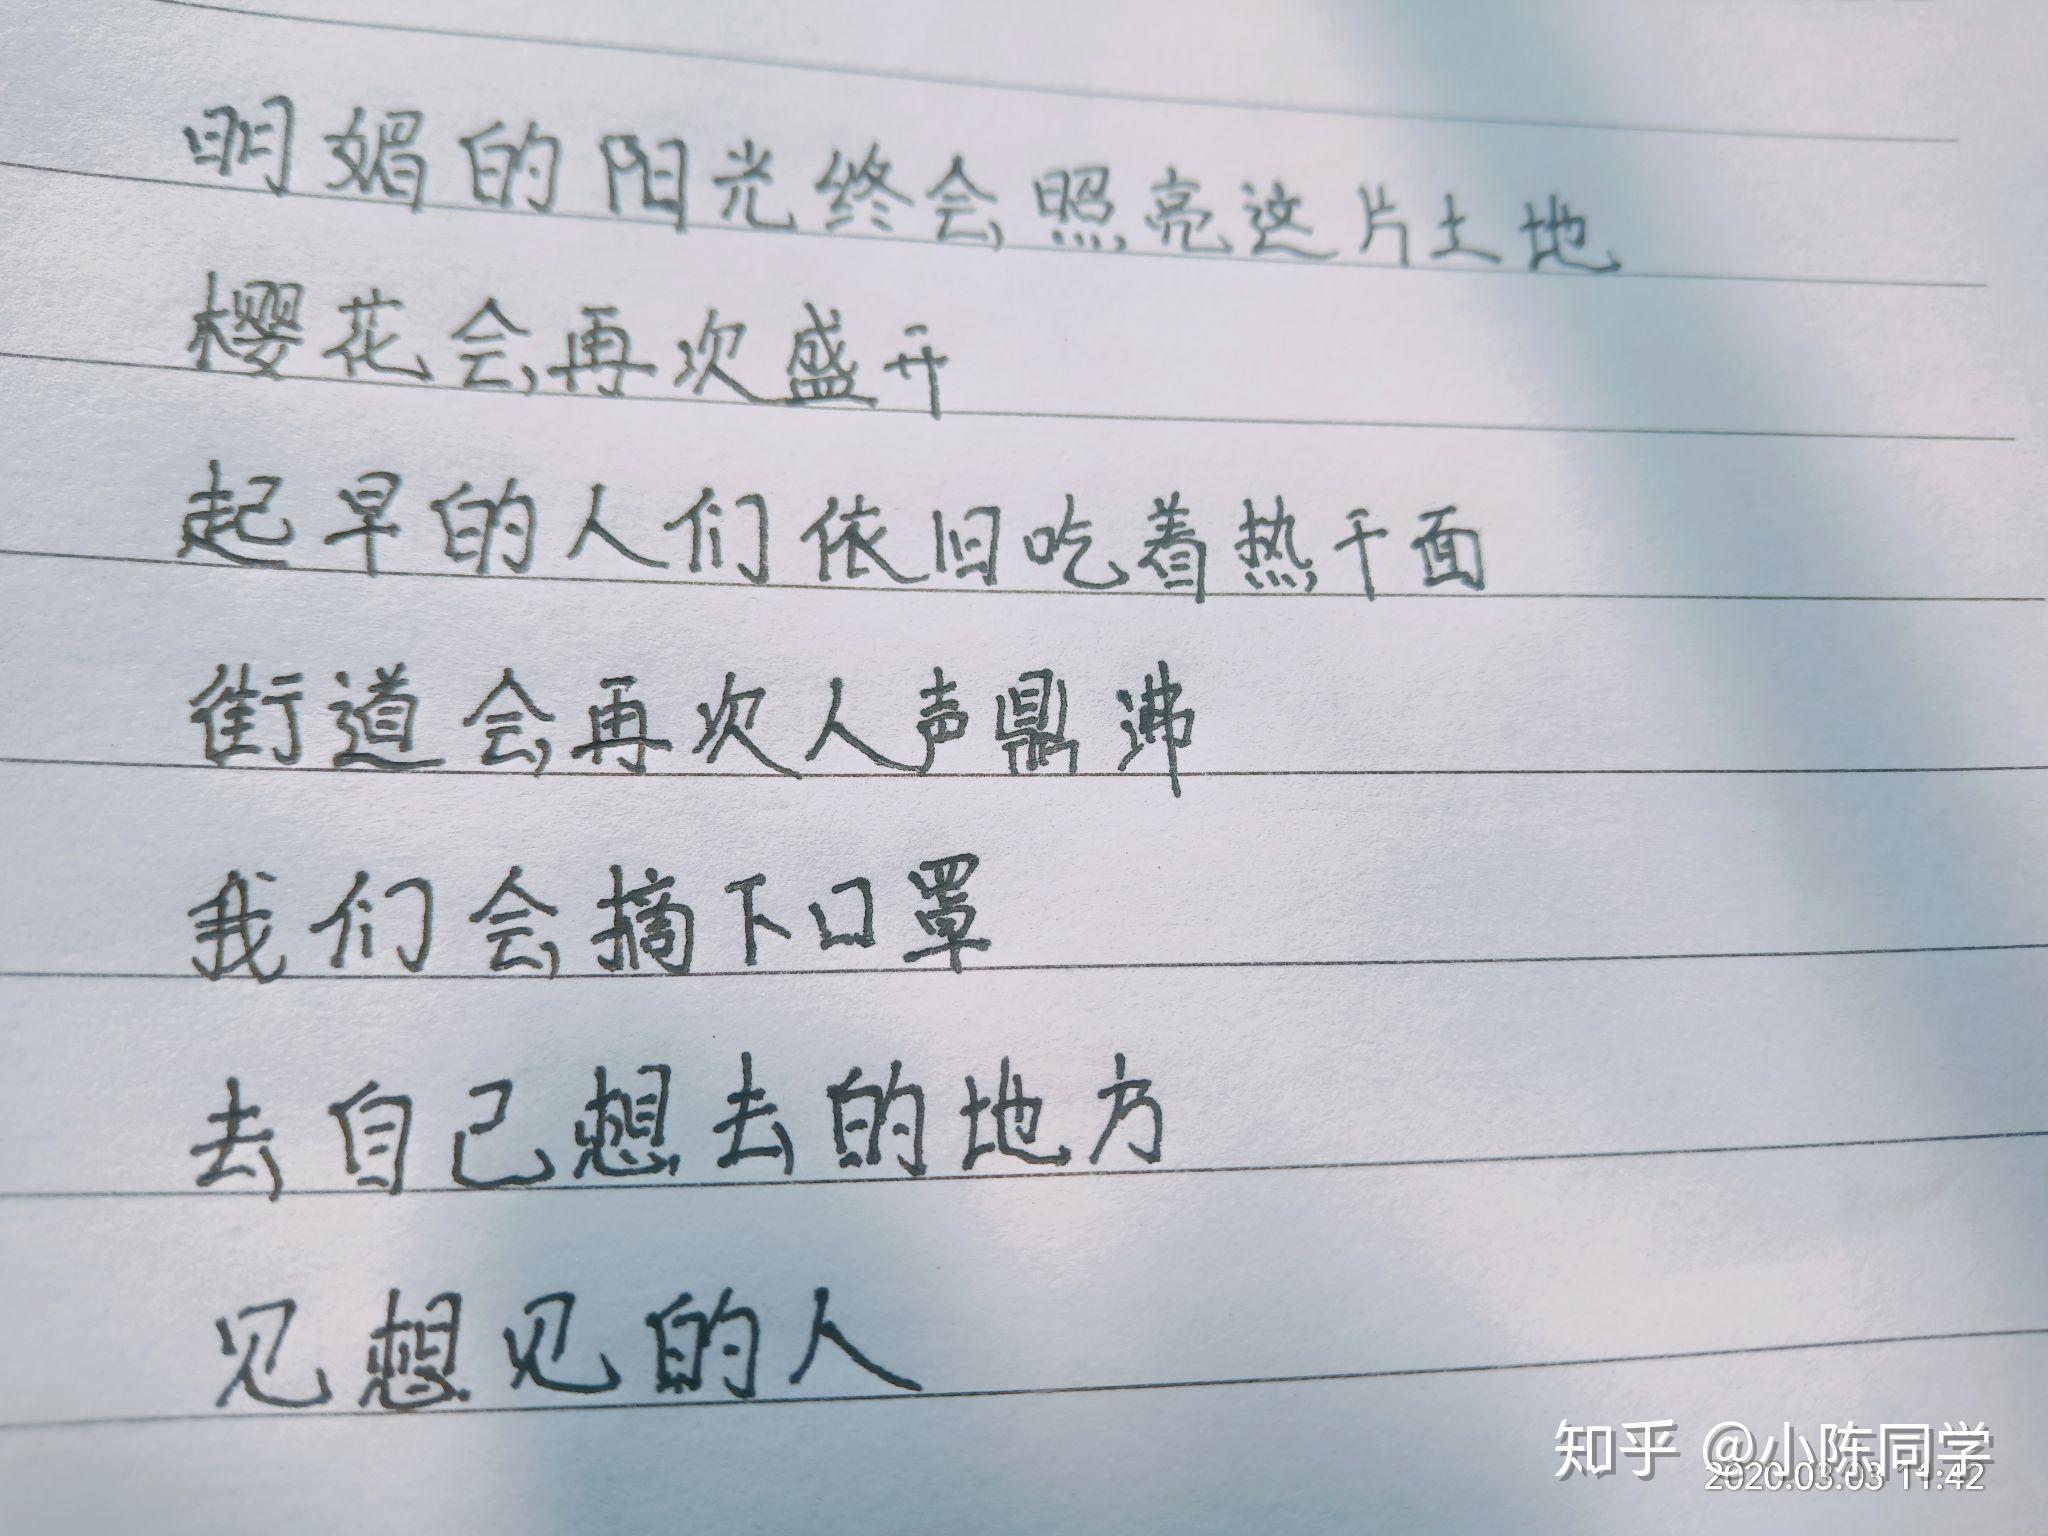 明媚的阳光终会照亮这片土地
樱花会再次盛开
起早的人们依旧吃着热干面
街道会再次人声鼎沸
我们会摘下口罩
去自己想去的地方
见想见的人
知乎 @小陈同学
2020.03.03 11:42